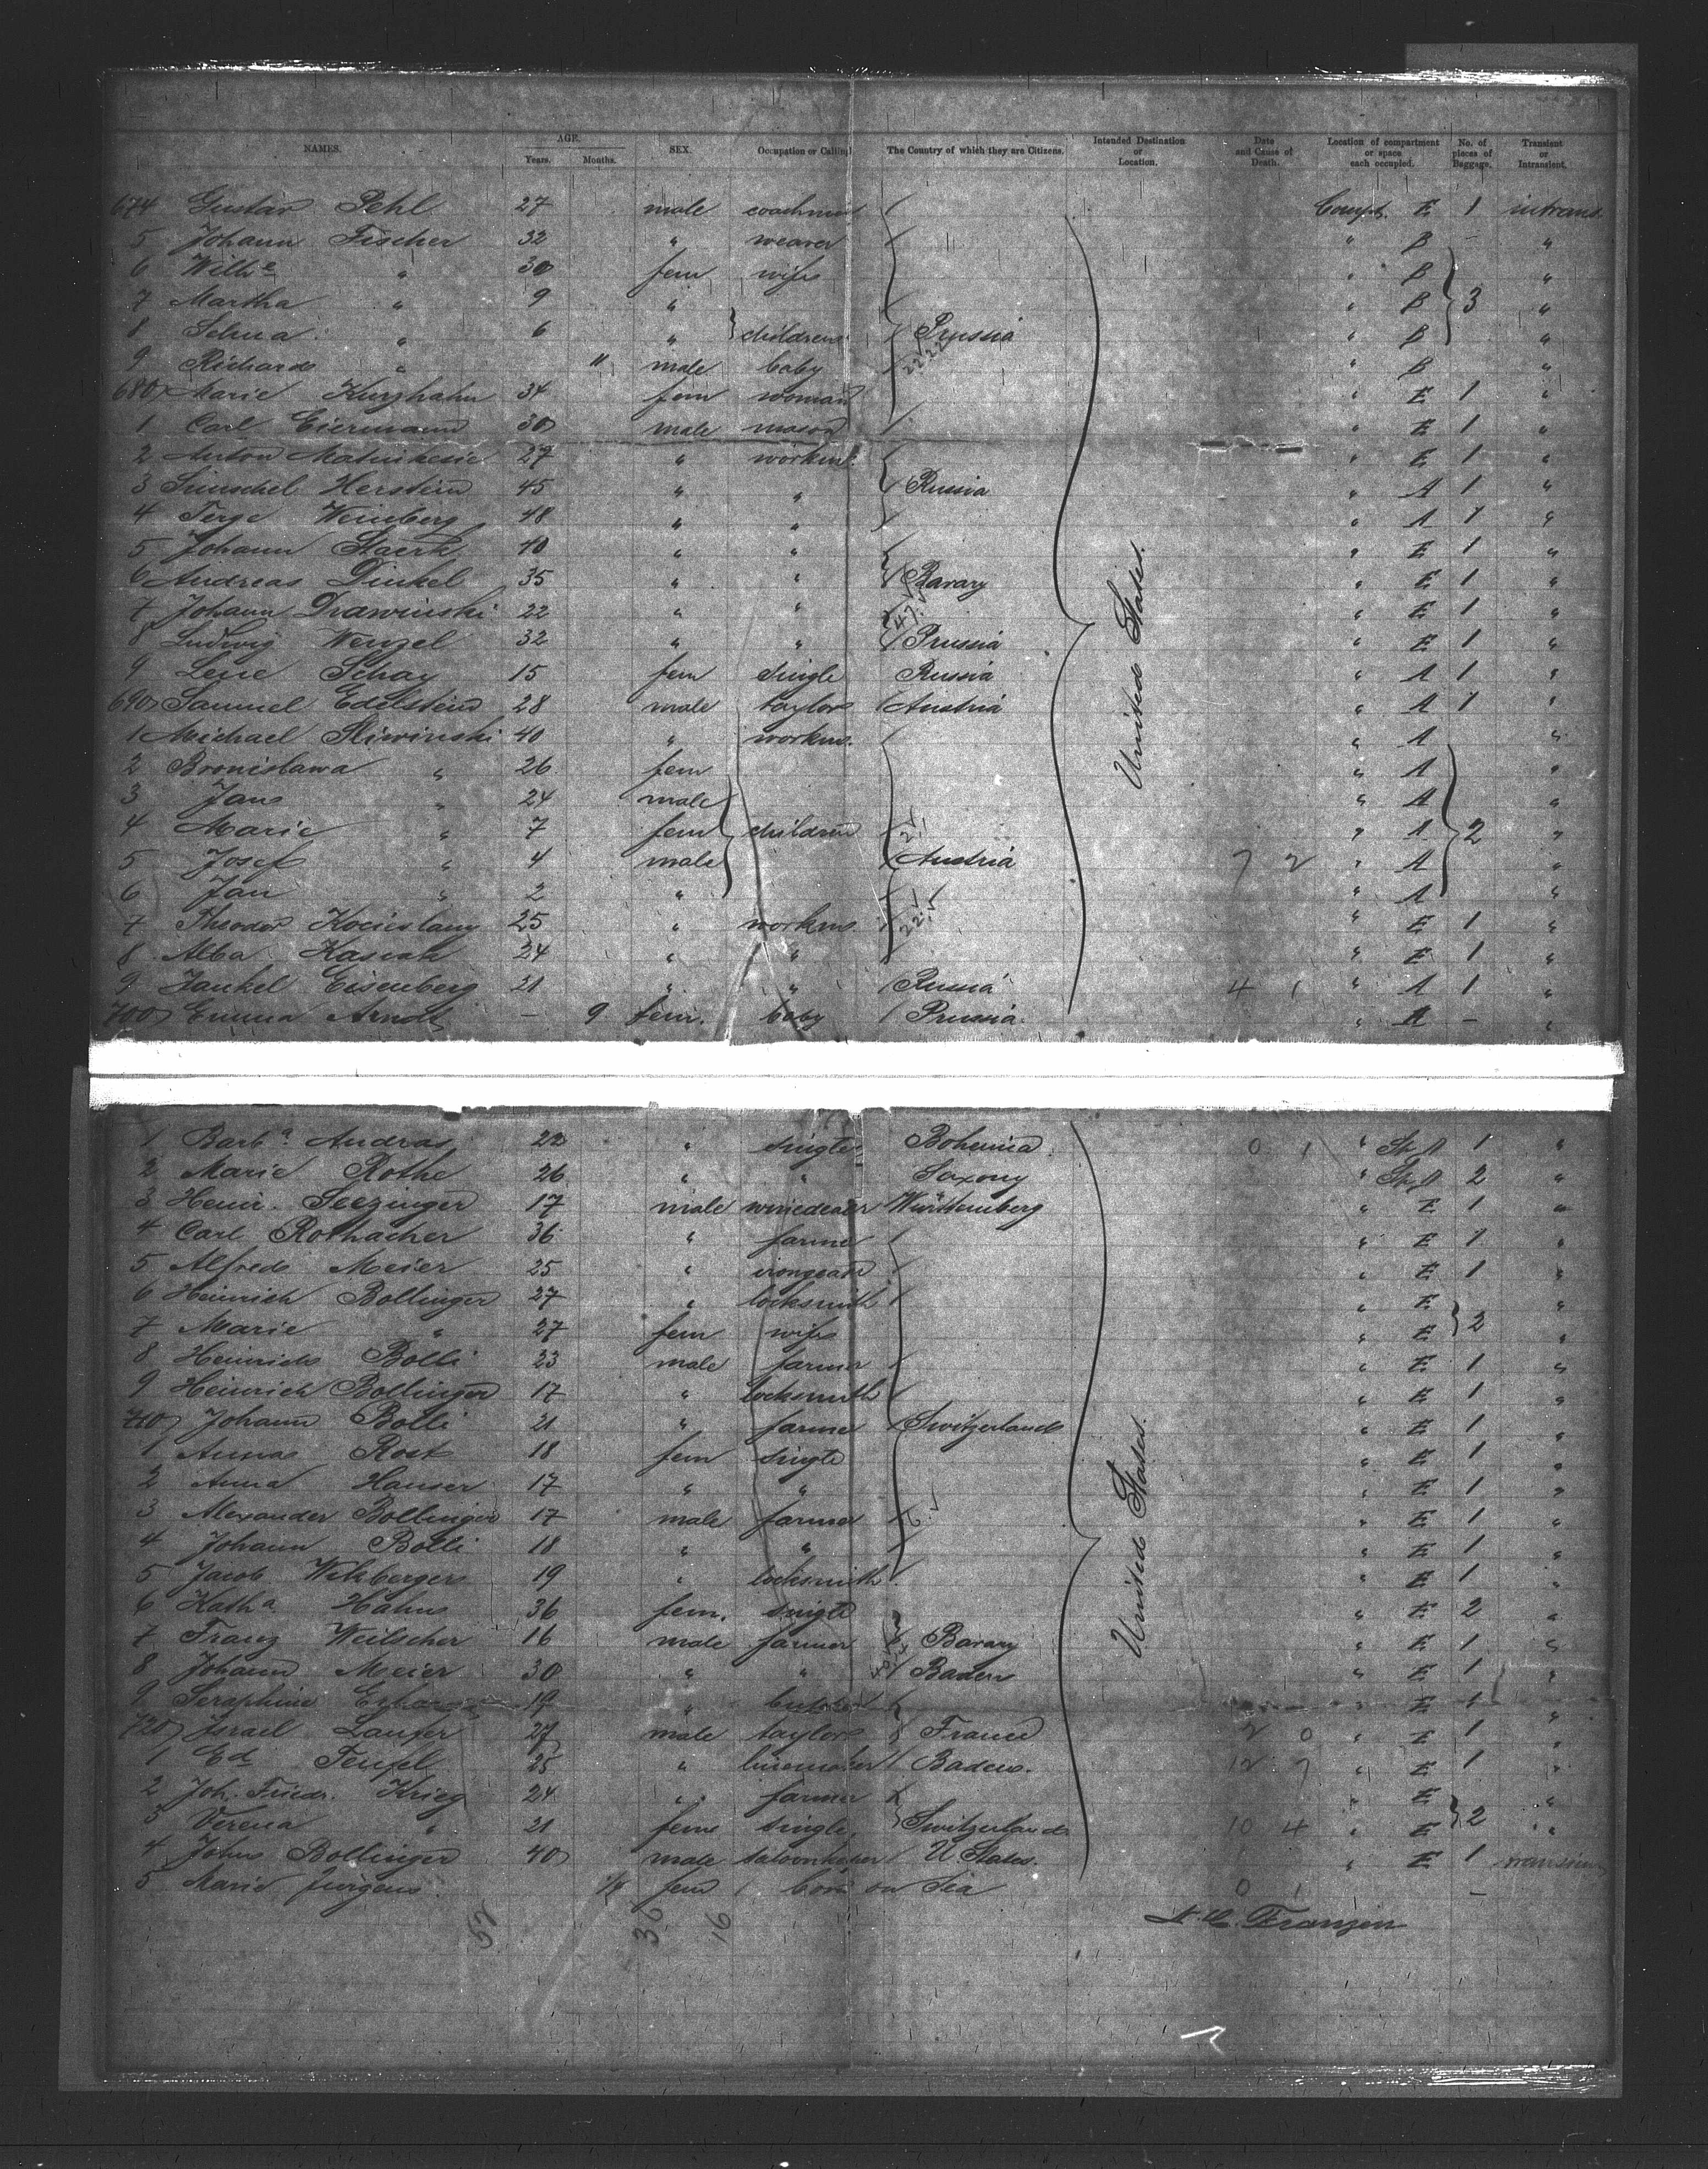 NAMES. AGE. Years. Months. SEX. Occupation or Calling The Country of which they are Citizens. Intended Destination or Location. Date and Cause of Death. Location of compartment or space each occupied. No. of pieces of Baggage. Transient or Intransient.
674 Gustav Pehl 27 male coachman Compt. E 1 intrans.
5 Johann Fischer 32 " weaver " B - "
6 Wilhe " 30 fem wife " B "
7 Martha " 9 " " B 3 "
8 Selma " 6 " children Prussia " B "
9 Richard " 11 male baby " B "
680 Marie Kurzhahn 34 fem woman " E 1 "
1 Carl Eiermann 30 male mason " E 1 "
2 Anton 27 " workm. " E 1 "
3 Herstein 45 " " Russia " A 1 "
4 Weinberg 48 " " " A 1 "
5 Johann Staerk 40 " " " E 1 "
6 Andreas Dinkel 35 " " Bavary " E 1 "
7 Johann Drawinski 22 " " " E 1 "
8 Ludwig Wenzel 32 " " Prussia " E 1 "
9 Lene Schay 15 fem single Russia " A 1 "
690 Samuel Edelstein 28 male taylor Austria " A 1 "
1 Michael Sliwinski 40 " workm. " A "
2 Bronislawa " 26 fem " A "
3 Jans " 24 male " A "
4 Marie " 7 fem children " A 2 "
5 Josef " 4 male Austria 7 2 " A "
6 Jan " 2 " " A "
7 Theodor 25 " workm. " E 1 "
8 Alba 24 " " " E 1 "
9 Jankel Eisenberg 21 " " Russia 4 1 " A 1 "
700 Emma Arndt - 9 fem. baby Prussia " A - "
United States.
1 Barba Andras 22 " single Bohemia 0 1 " St. A 1 "
2 Marie Rothe 26 " " Saxony " St. A 2 "
3 Heinr. Seezinger 17 male winedealer Württemberg " E 1 "
4 Carl Rothacher 36 " farmer " E 1 "
5 Alfred Meier 25 " " E 1 "
6 Heinrich Bollinger 27 " locksmith " E "
7 Marie " 27 fem wife " E 2 "
8 Heinrich Bolli 23 male farmer " E 1 "
9 Heinrich Bollinger 17 " locksmith " E 1 "
710 Johann Bolli 21 " farmer Switzerland " E 1 "
1 Anna Rost 18 fem single " E 1 "
2 Anna Hauser 17 " " " E 1 "
3 Alexander Bollinger 17 male farmer " E 1 "
4 Johann Bolli 18 " " " E 1 "
5 Jacob 19 " locksmith " E 1 "
6 Katha Hahn 36 fem. single " E 2 "
7 Franz Weilscher 16 male farmer Bavary " E 1 "
8 Johann Meier 30 " " Baden " E 1 "
9 Seraphine 19 " " E 1 "
720 Israel Laufer 27 male taylor France 2 0 " E 1 "
1 Ed Teufel 25 " Baden. 12 7 " E 1 "
2 Joh. Friedr. Krieg 24 " farmer " E "
3 Verena " 21 fem single Switzerland 10 4 " E 2 "
4 John Bollinger 40 male saloonkeeper U. States. " E 1
5 Marie Jurgens fem born on Sea 0 1 -
United States.
52 36 16
Franzen